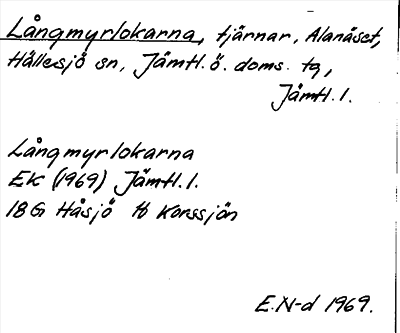 Långmyrlokarna, tjärnar, Alanäset,
Hällesjö sn, Jämtl. ö. doms. tg,
Jämtl. l.
Långmyrlokarna
EK (1969) Jämtl. l.
18G Håsjö Korssjön
E.N-d 1969.